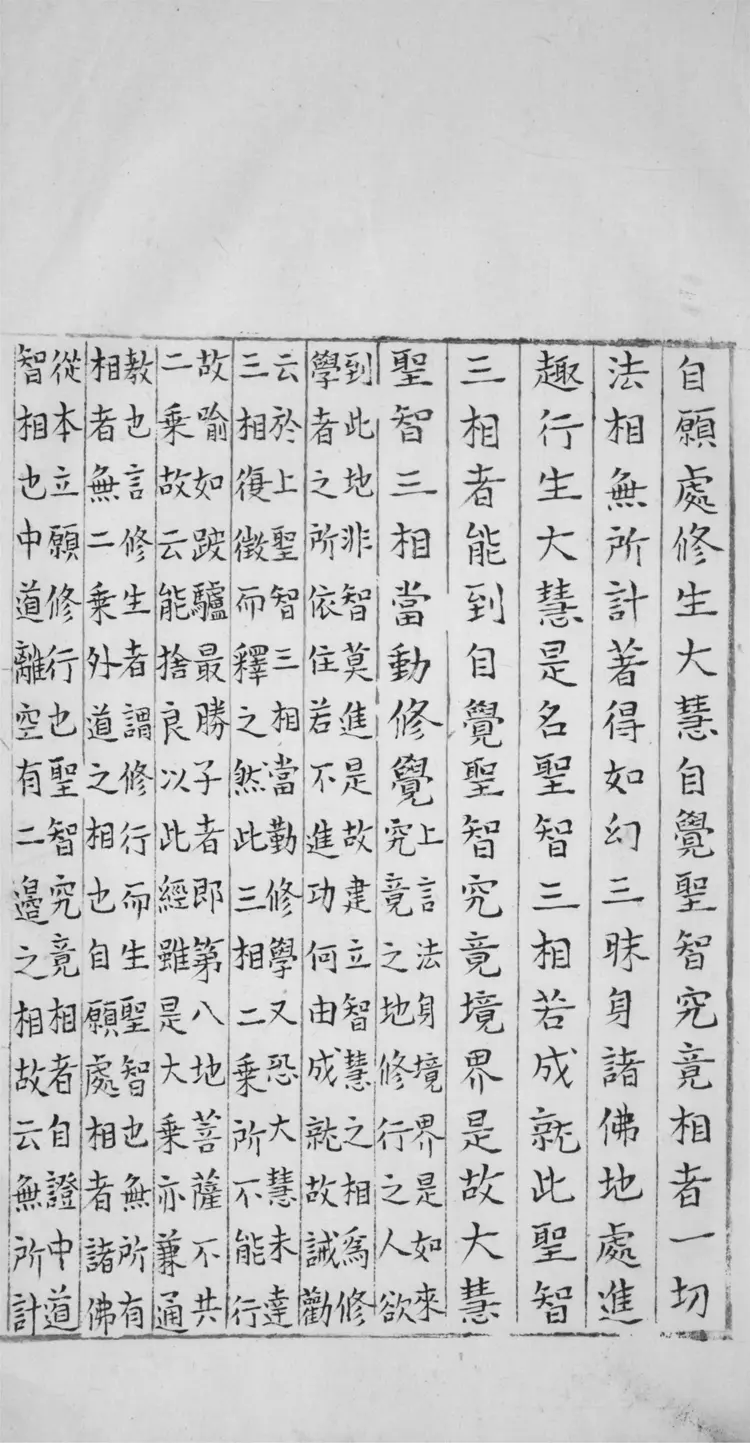 自願處修生大慧自覺聖智究竟相者一切
法相無所計著得如幻三昧身諸佛地處進
趣行生大慧是名聖智三相若成就此聖智
三相者能到自覺聖智究竟境界是故大慧
聖智三相當動修覺
上言法身境界是如來
究竟之地修行之人欲
到此地非智莫進是故建立智慧之相爲修
學者之所依住若不進功何由成就故誡勸
云於上聖智三相當勤修學又恐大慧未達
三相復徵而釋之然此三相二乘所不能行
故喻如跛驢最勝子者即第八地菩薩不共
二乘故云能捨良以此經雖是大乘亦兼通
教也言修生者謂修行而生聖智也無所有
相者無二乘外道之相也自願處相者諸佛
從本立願修行也聖智究竟相者自證中道
智相也中道離空有二邊之相故云無所計